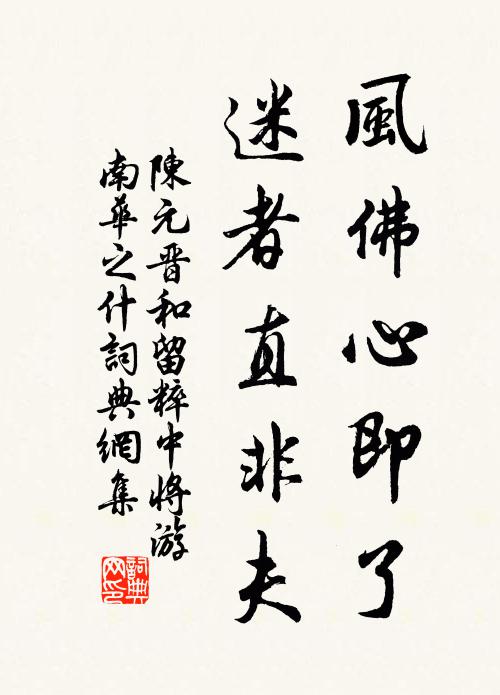 風佛心即了
迷者直非夫
陳元晉和留粹中將游
南華之什詞典網集
詞典
网印